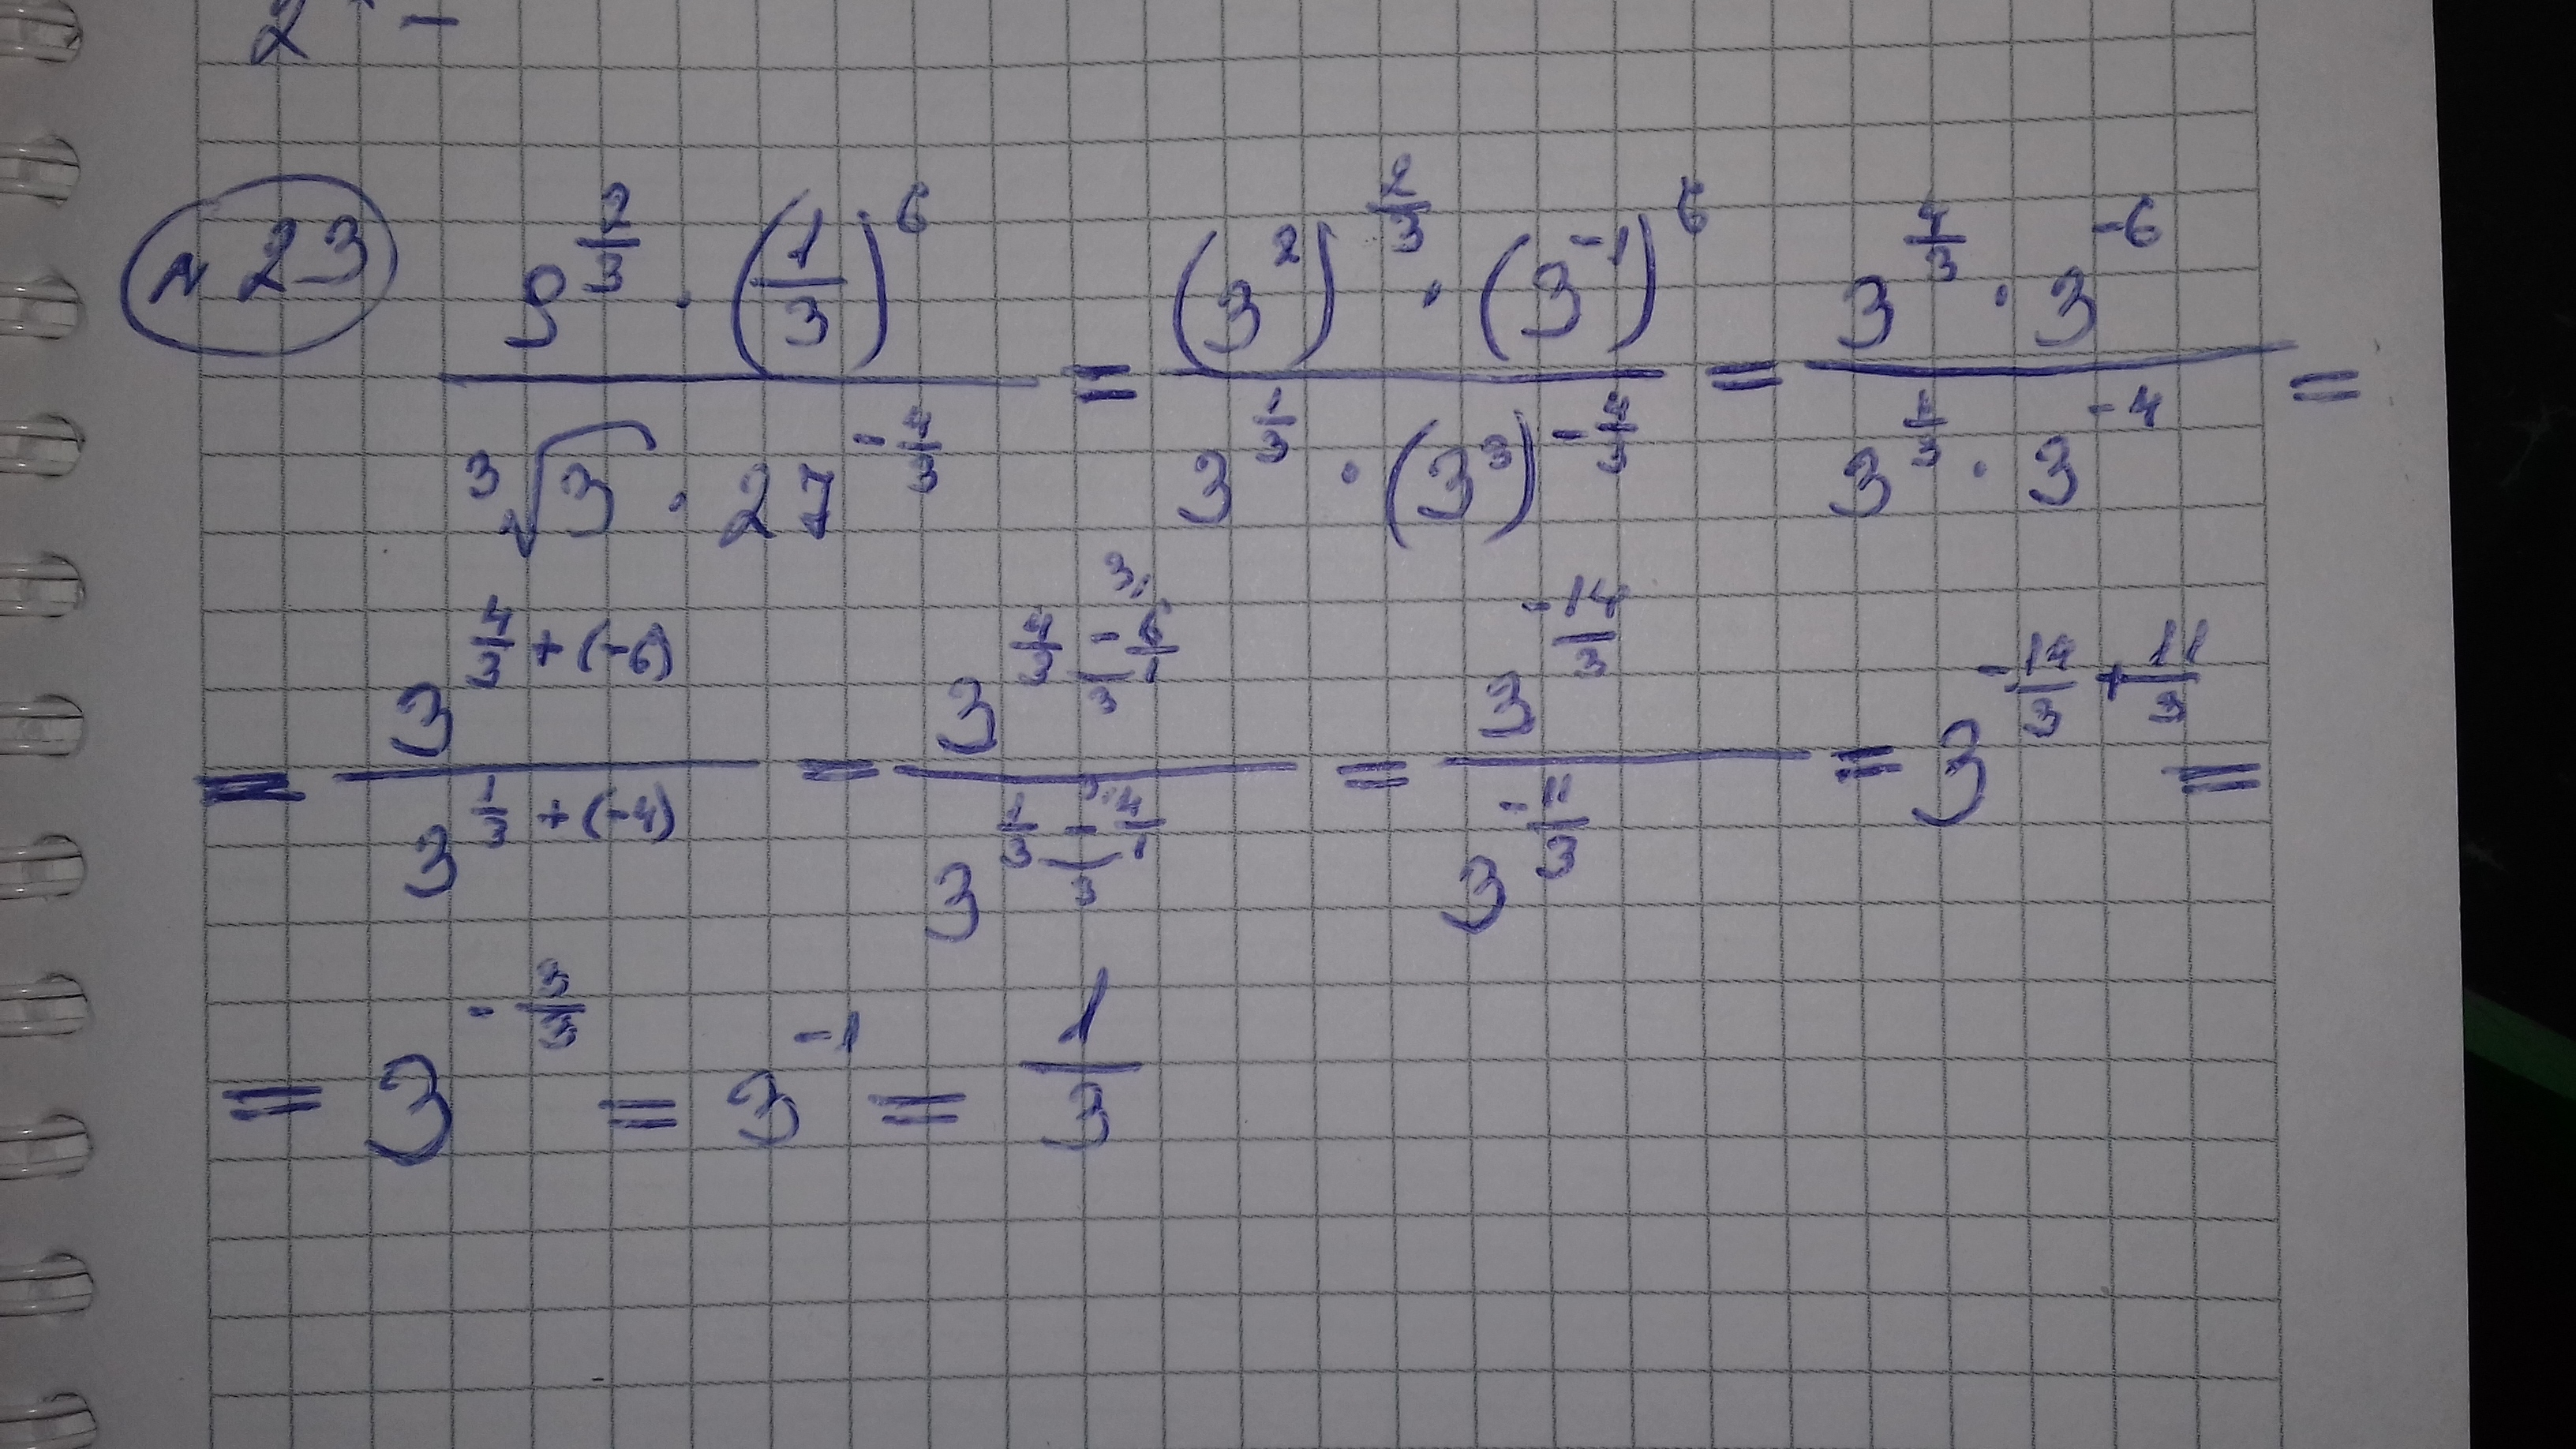 2 -
N 23 (9^(2/3) · (1/3)^6) / (³√3 · 27^(-4/3)) = ((3^2)^(2/3) · (3^(-1))^6) / (3^(1/3) · (3^3)^(-4/3)) = (3^(4/3) · 3^(-6)) / (3^(1/3) · 3^(-4)) =
= 3^(4/3 + (-6)) / 3^(1/3 + (-4)) = 3^(4/3 - 6/1) / 3^(1/3 - 4/1) = 3^(-14/3) / 3^(-11/3) = 3^(-14/3 + 11/3) =
= 3^(-3/3) = 3^(-1) = 1/3